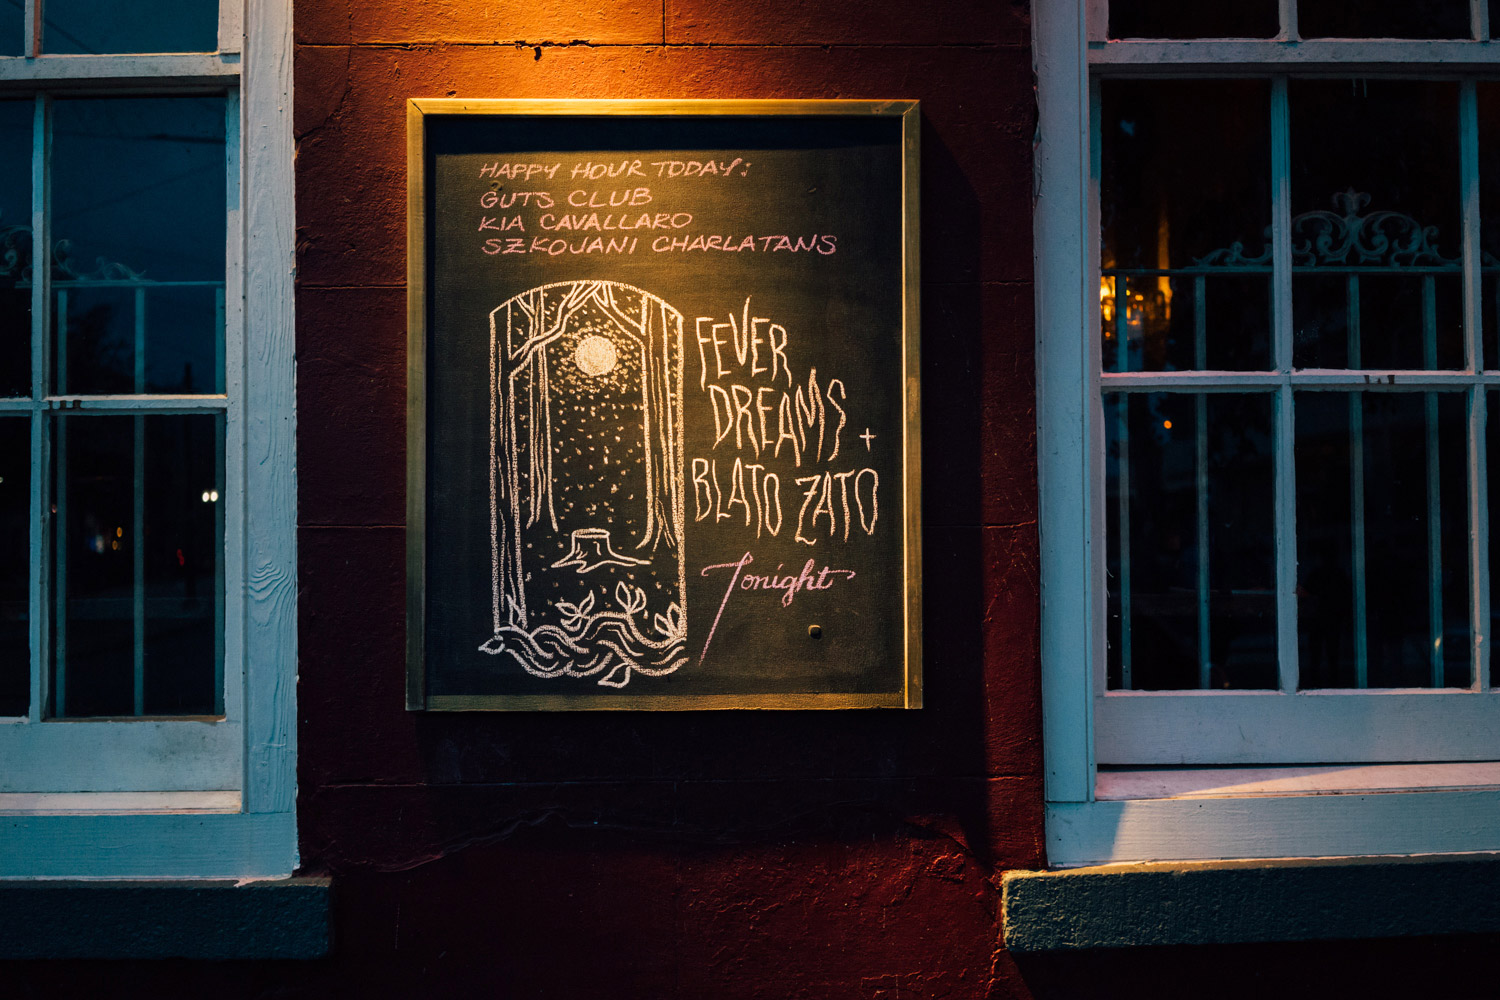 HAPPY HOUR TODAY:
GUTS CLUB
KIA CAVALLARO
SZKOJANI CHARLATANS
FEVER
DREAMS +
BLATO ZATO
Tonight